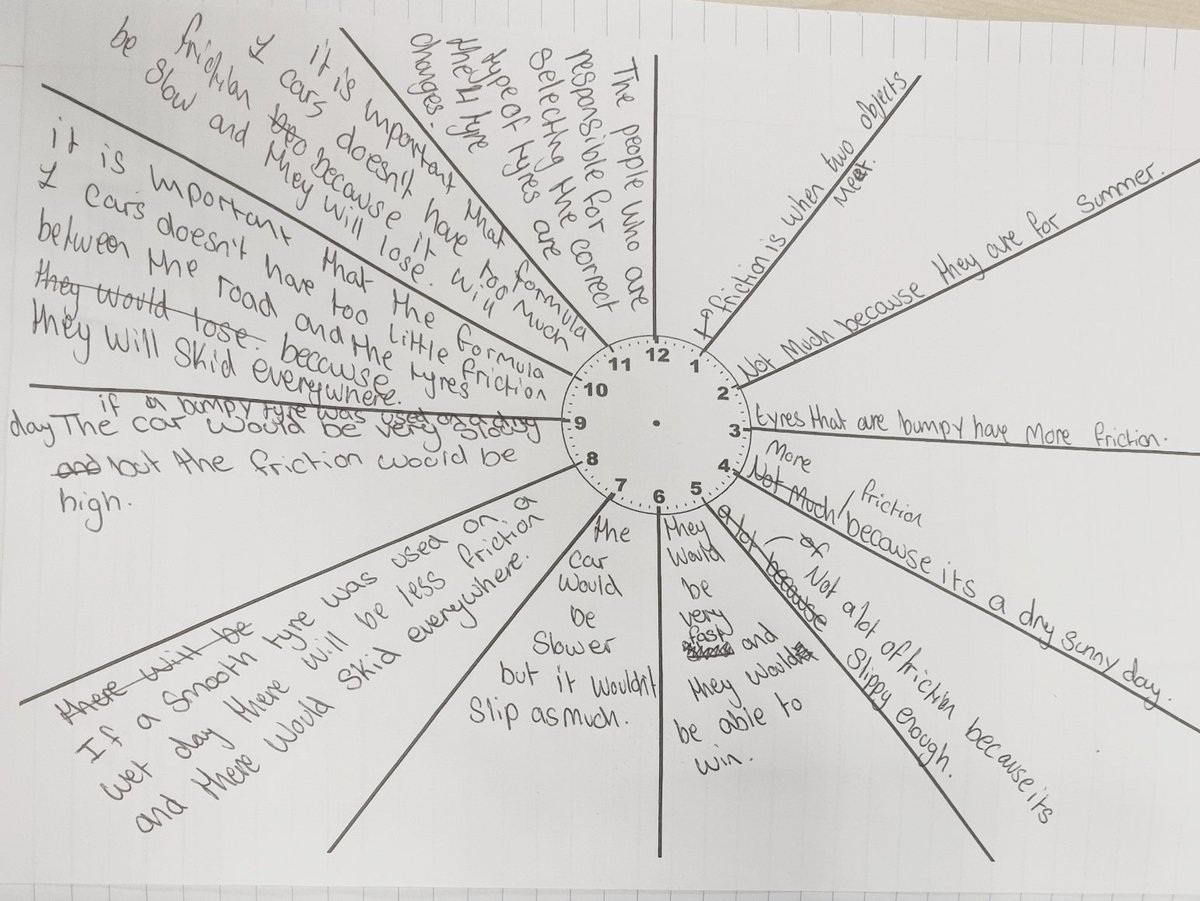 12
1
2
3
4
5
6
7
8
9
10
11
friction is when two objects
meet.
Not Much because they are for Summer.
tyres that are bumpy have more friction.
More friction
Not Much because its a dry sunny day.
a lot because of
Not a lot of friction because its
Slippy enough.
they
Would
be
very
fast
and
they would
be able to
win.
the
Car
Would
be
Slower
but it wouldn't
Slip as much.
there will be
If a smooth tyre was used on a
wet day there will be less friction
and there would skid everywhere.
if a bumpy tyre was used on a dry
day The car would be very slow
and but the friction would be
high.
it is important that the formula
1 cars doesn't have too little friction
between the road and the tyres
they would lose because
they will skid everywhere.
it is important that formula
1 cars doesn't have too much
friction because it will
be slow and they will lose.
The people who are
responsible for
selecting the correct
type of tyres are
the tyre
changes.